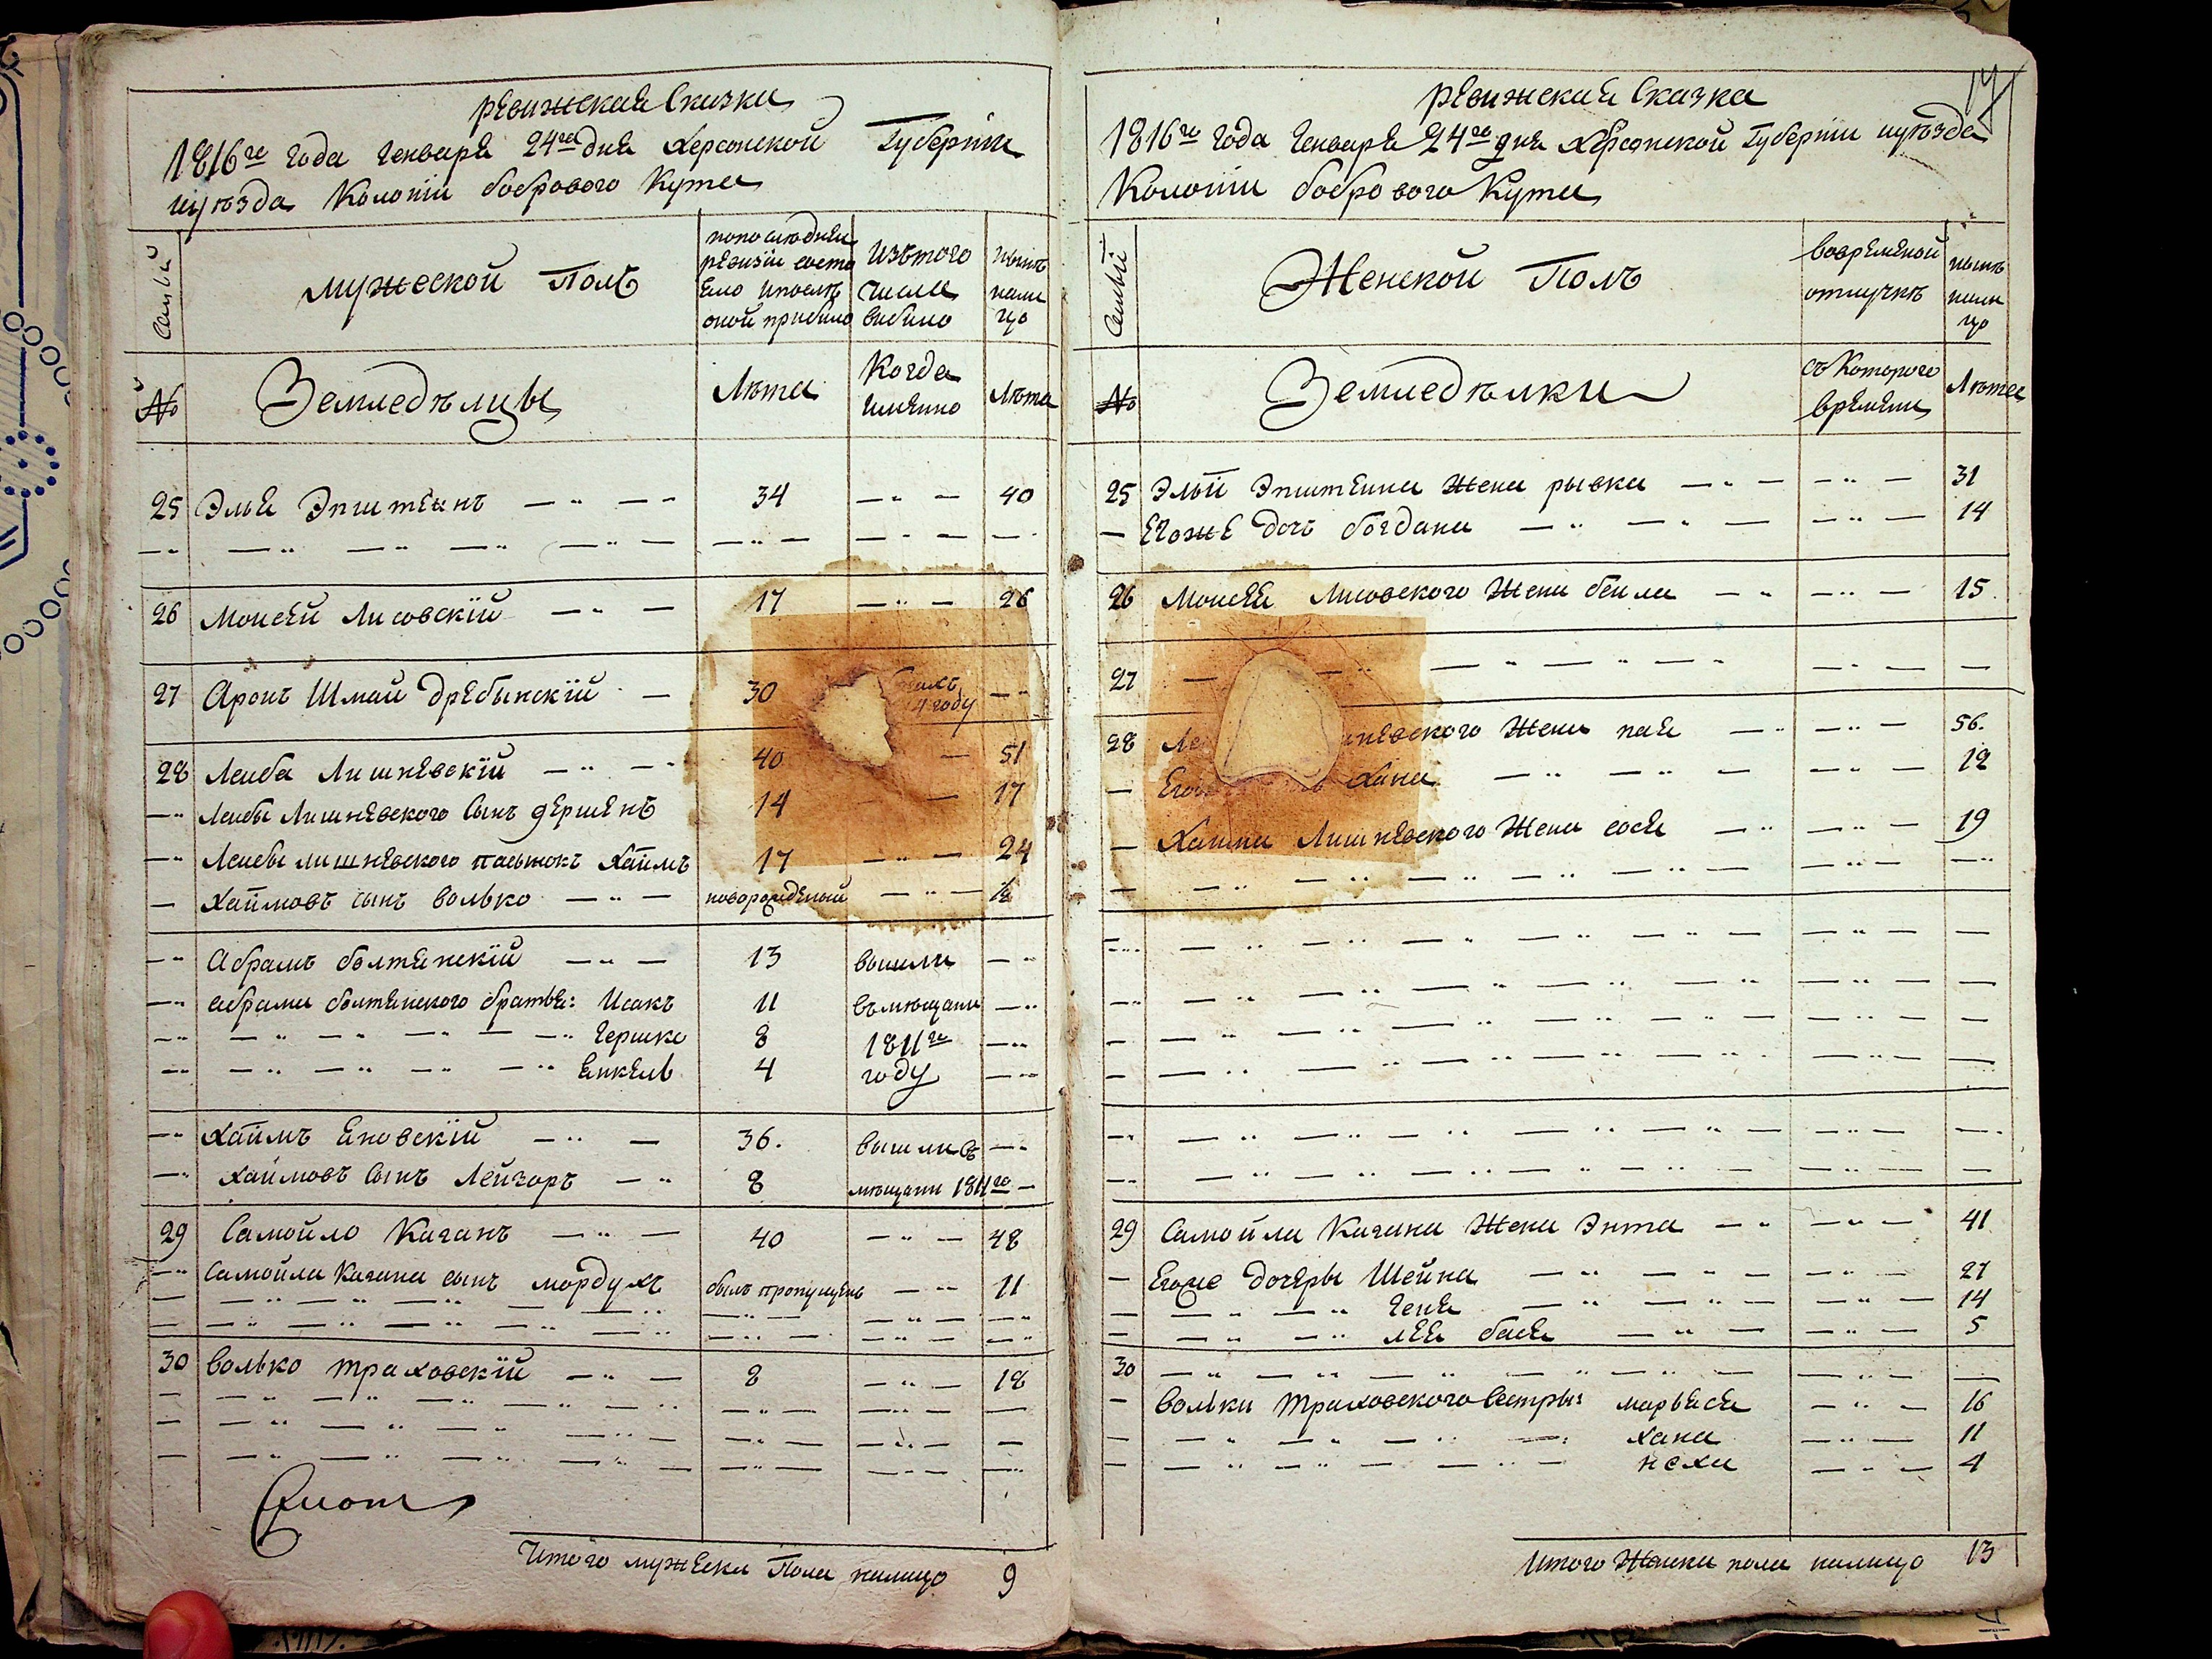 ревижская Сказка
1816го года Генваря 24го дня Херсонской Губернiи
иуѣзда Колонiи бобрового Кута
Семьи
мужеской Полъ
попослѣдней
ревизiи состо
яло ипослѣ
оной прибыло
Изътого
числа
выбыло
нынѣ
нали
цо
№
Земледѣльцы
Лѣта
Когда
имянно
Лѣта
25 Элья Эпштейнъ 34 40
26 Моисей Лисовскiй 17 26
27 Аронъ Шмай дребынскiй 30 году
28 Лейба Лишневскiй 40 51
Лейбы Лишневского Сынъ гершенъ 14 17
Лейбы лишневского пасынокъ Хаимъ 17 24
Хаимовъ сынъ Волько новорожденый 1/2
Абрамъ болтянскiй 13 вышли
Абрама болтянского братья: Исакъ 11 въмѣщане
Гершко 8 1811го
Янкель 4 году
Хаимъ Яновскiй 36. вышли въ
Хаимовъ Сынъ Лейзоръ 8 мѣщане 1811го
29 Самойло Каганъ 40 48
Самойла Кагана сынъ мордухъ былъ пропущенъ 11
30 Волько траховскiй 8 18
Итого мужеска Пола налицо 9
14
ревижская Сказка
1816го года Генваря 24го дня Херсонской Губернiи иуѣзда
Колонiи бобрового Кута
Семьи
Женской Полъ
вовременой
отлучкѣ
нынѣ
нали
цо
№
Земледѣлки
съ Которого
времени
Лѣта
25 Эльи Эпштейна Жена рывка 31
Егоже дочь богдана 14
26 Моисея Лисовского Жена бейла 15
27
28 Ле невского Жена пая 56.
Его Хана 12
Хаима Лишневского Жена сося 19
29 Самойла Кагана Жена Энта 41
Егоже дочеры Шейна 27
Геня 14
лея бася 5
30
Вольки Траховского Сестры: марьяся 16
хана 11
неха 4
Итого Женска пола налицо 13